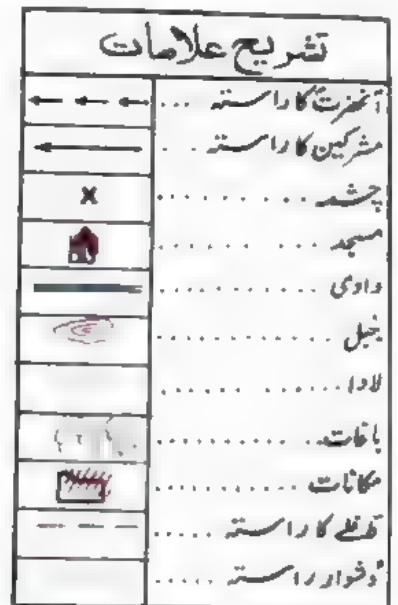 تشریح علامات
آنحضرتؐ کا راستہ ...
مشرکین کا راستہ ...
چشمہ ...
مسجد ...
وادی ...
جبل ...
لاوا ...
باغات ...
مکانات ...
قافلے کا راستہ ...
دشوار راستہ ...